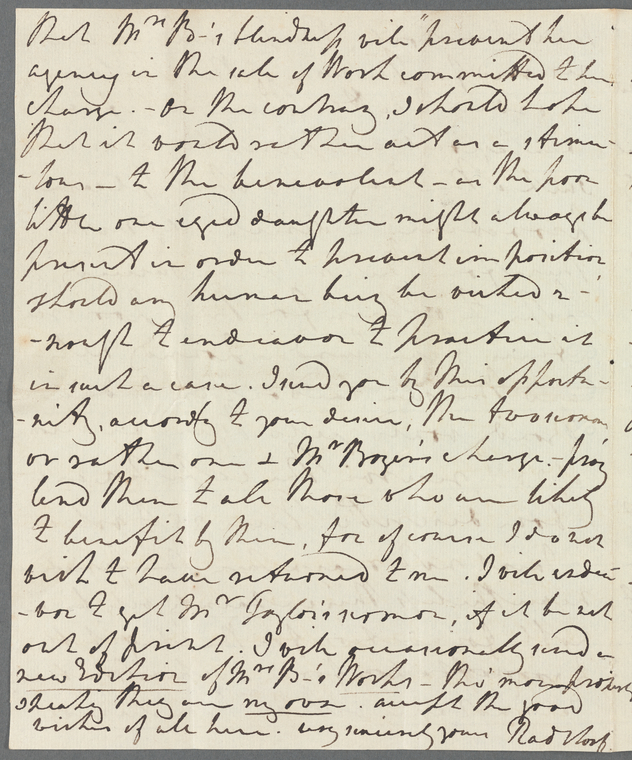 that Mrs B-'s blindness will prevent her
agency in the sale of Work committed to her
charge. - On the contrary, I should hope
that it would rather act as a stimu-
-lous - to the benevolent - as the poor
little one eyed daughter might always be
present in order to prevent imposition
should any human being be wicked e-
-nough to endeavor to practice it
in such a case. I send you by this opportu-
-nity, accordg to your desire, the two sermons
or rather one & Mr Bozer's charge. - pray
lend them to all those who are likely
to benefit by them, for of course I do not
wish to have returned to me. I will endea-
-vor to get Mr Taylor's sermon, if it be not
out of print. I will occasionally send a
new Edition of Mrs B-'s Works - tho' more properly
speaking they are my own. accept the good
wishes of all here. very sincerely yours